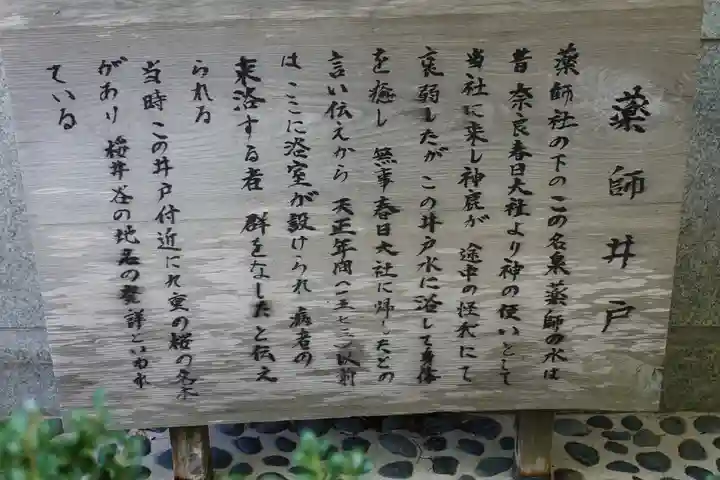 薬師井戸
薬師社の下のこの名泉薬師の水は
昔奈良春日大社より神の使いとして
当社に来し神鹿が 途中の怪我にて
衰弱したが この井戸水に浴して身体
を癒し 無事春日大社に帰したとの
言い伝えから 天正年間(一五七三)以前
は ここに浴室が設けられ 病者の
来浴する者 群をなしたと伝え
られる
当時 この井戸付近に九重の桜の名木
があり 桜井谷の地名の発祥といわれ
ている